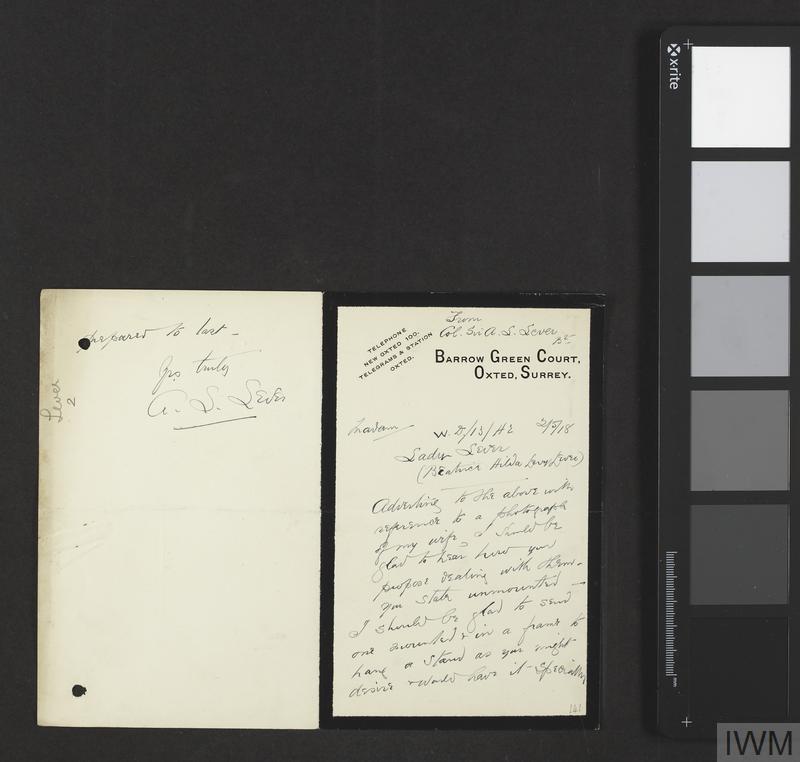 From
Col. Sir A. L. Lever Bt
TELEPHONE
NEW OXTED 100.
TELEGRAMS & STATION
OXTED.
BARROW GREEN COURT,
OXTED, SURREY.
Madam
W.D/13/H2 2/5/18
Lady Lever
(Beatrice Hilda Levy Lever)
Adverting to the above with
reference to a photograph
of my wife I should be
glad to hear how you
propose dealing with them.
You state unmounted —
I should be glad to send
one mounted & in a frame to
hang or stand as you might
desire & would have it specially
141
prepared to last —
Yrs truly
A. L. Lever
Lever
2
x·rite
mm
IWM